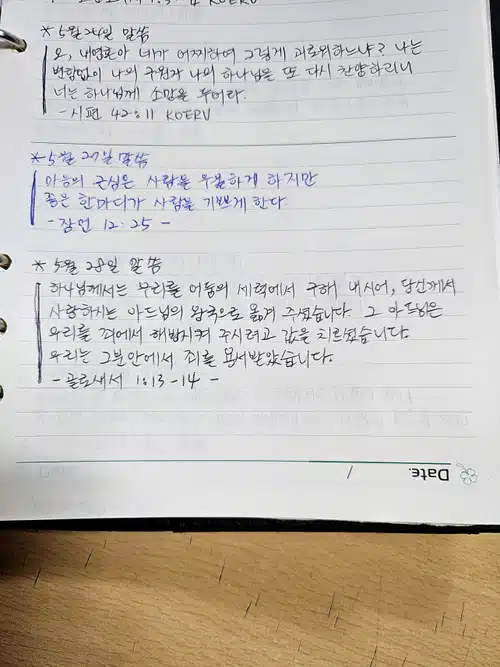 * 5월 24일 말씀
오, 내 영혼아 네가 어찌하여 그렇게 괴로워하느냐? 나는
변함없이 나의 구원자 나의 하나님을 또 다시 찬양하리니
너는 하나님께 소망을 두어라.
- 시편 42:11 KOERV
* 5월 27일 말씀
마음의 근심은 사람을 우울하게 하지만
좋은 한마디가 사람을 기쁘게 한다
- 잠언 12:25 -
* 5월 28일 말씀
하나님께서는 우리를 어둠의 세력에서 구해 내시어, 당신께서
사랑하시는 아드님의 왕국으로 옮겨 주셨습니다. 그 아드님은
우리를 죄에서 해방시켜 주시려고 값을 치르셨습니다.
우리는 그분 안에서 죄를 용서받았습니다.
- 골로새서 1:13-14 -
Date. /